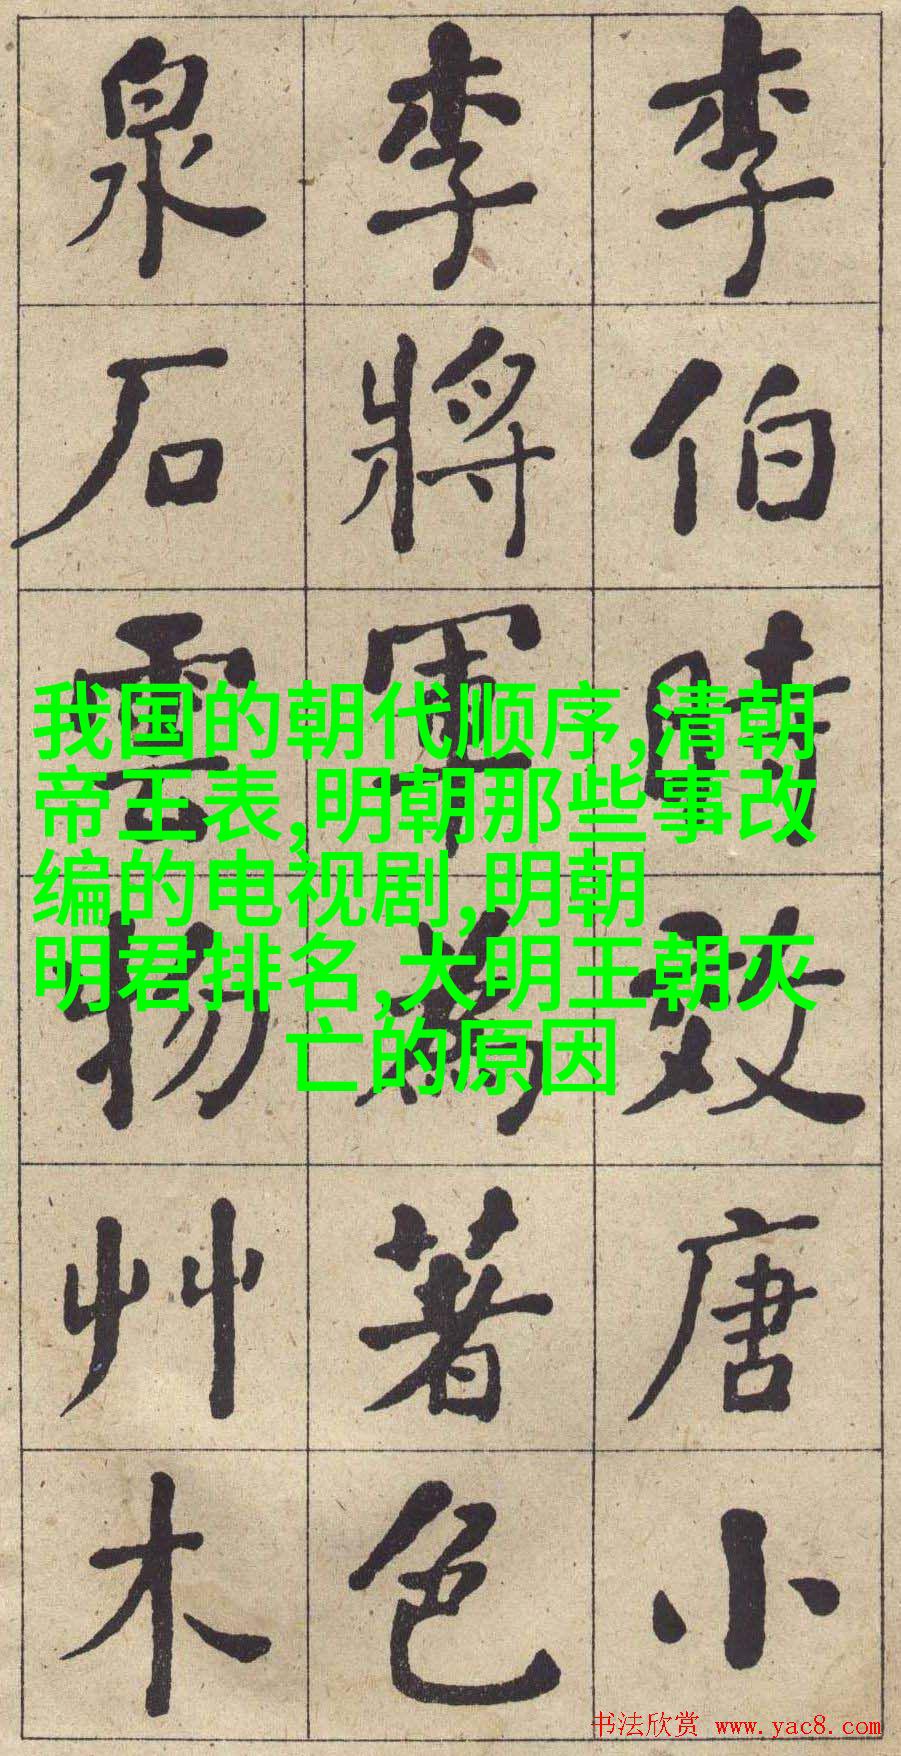 李伯時效唐小
李將軍爲著色
泉石雲物艸木
我国的朝代顺序,清朝
帝王表,明朝那些事改
编的电视剧,明朝
明君排名,大明王朝灭
亡的原因
书法欣赏 www.yac8.com